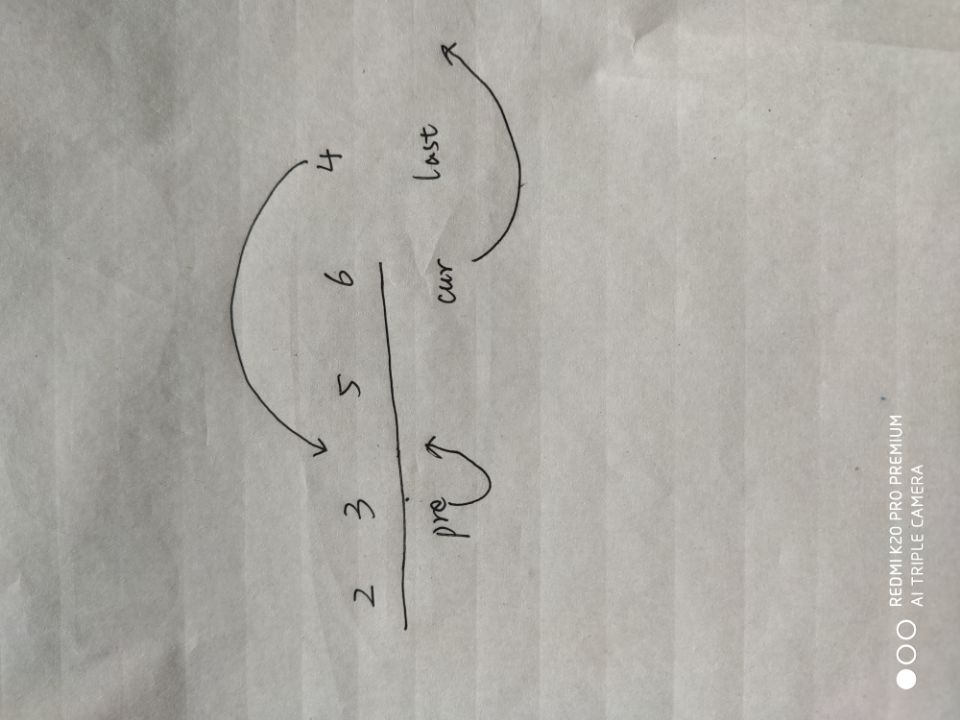 2 3 5 6 4
pre cur last
REDMI K20 PRO PREMIUM
AI TRIPLE CAMERA